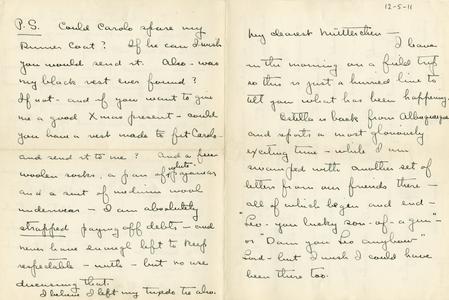 12-5-11
My dearest Mütterchen —
I leave
in the morning on a field trip
so this is just a hurried line to
tell you what has been happening.
Estella is back from Albuquerque
and reports a most gloriously
exciting time — while I am
swamped with another set of
letters from our friends there —
all of which began and end —
"Leo - you lucky son-of-a-gun" —
or "Damn you Leo anyhow"
Lord — but I wish I could have
been there too.
P.S. Could Carolo spare my
Dinner Coat? If he can I wish
you would send it. Also - was
my black vest ever found?
If not - and if you want to give
me a good Xmas present - could
you have a vest made to fit Carolo
and send it to me? And a few
woolen socks, a pair of white pyjamas
and a suit of medium wool
underwear — I am absolutely
strapped paying off debts — and
never have enough left to keep
respectable — with — but no use
discussing that.
I believe I left my tuxedo tie also.